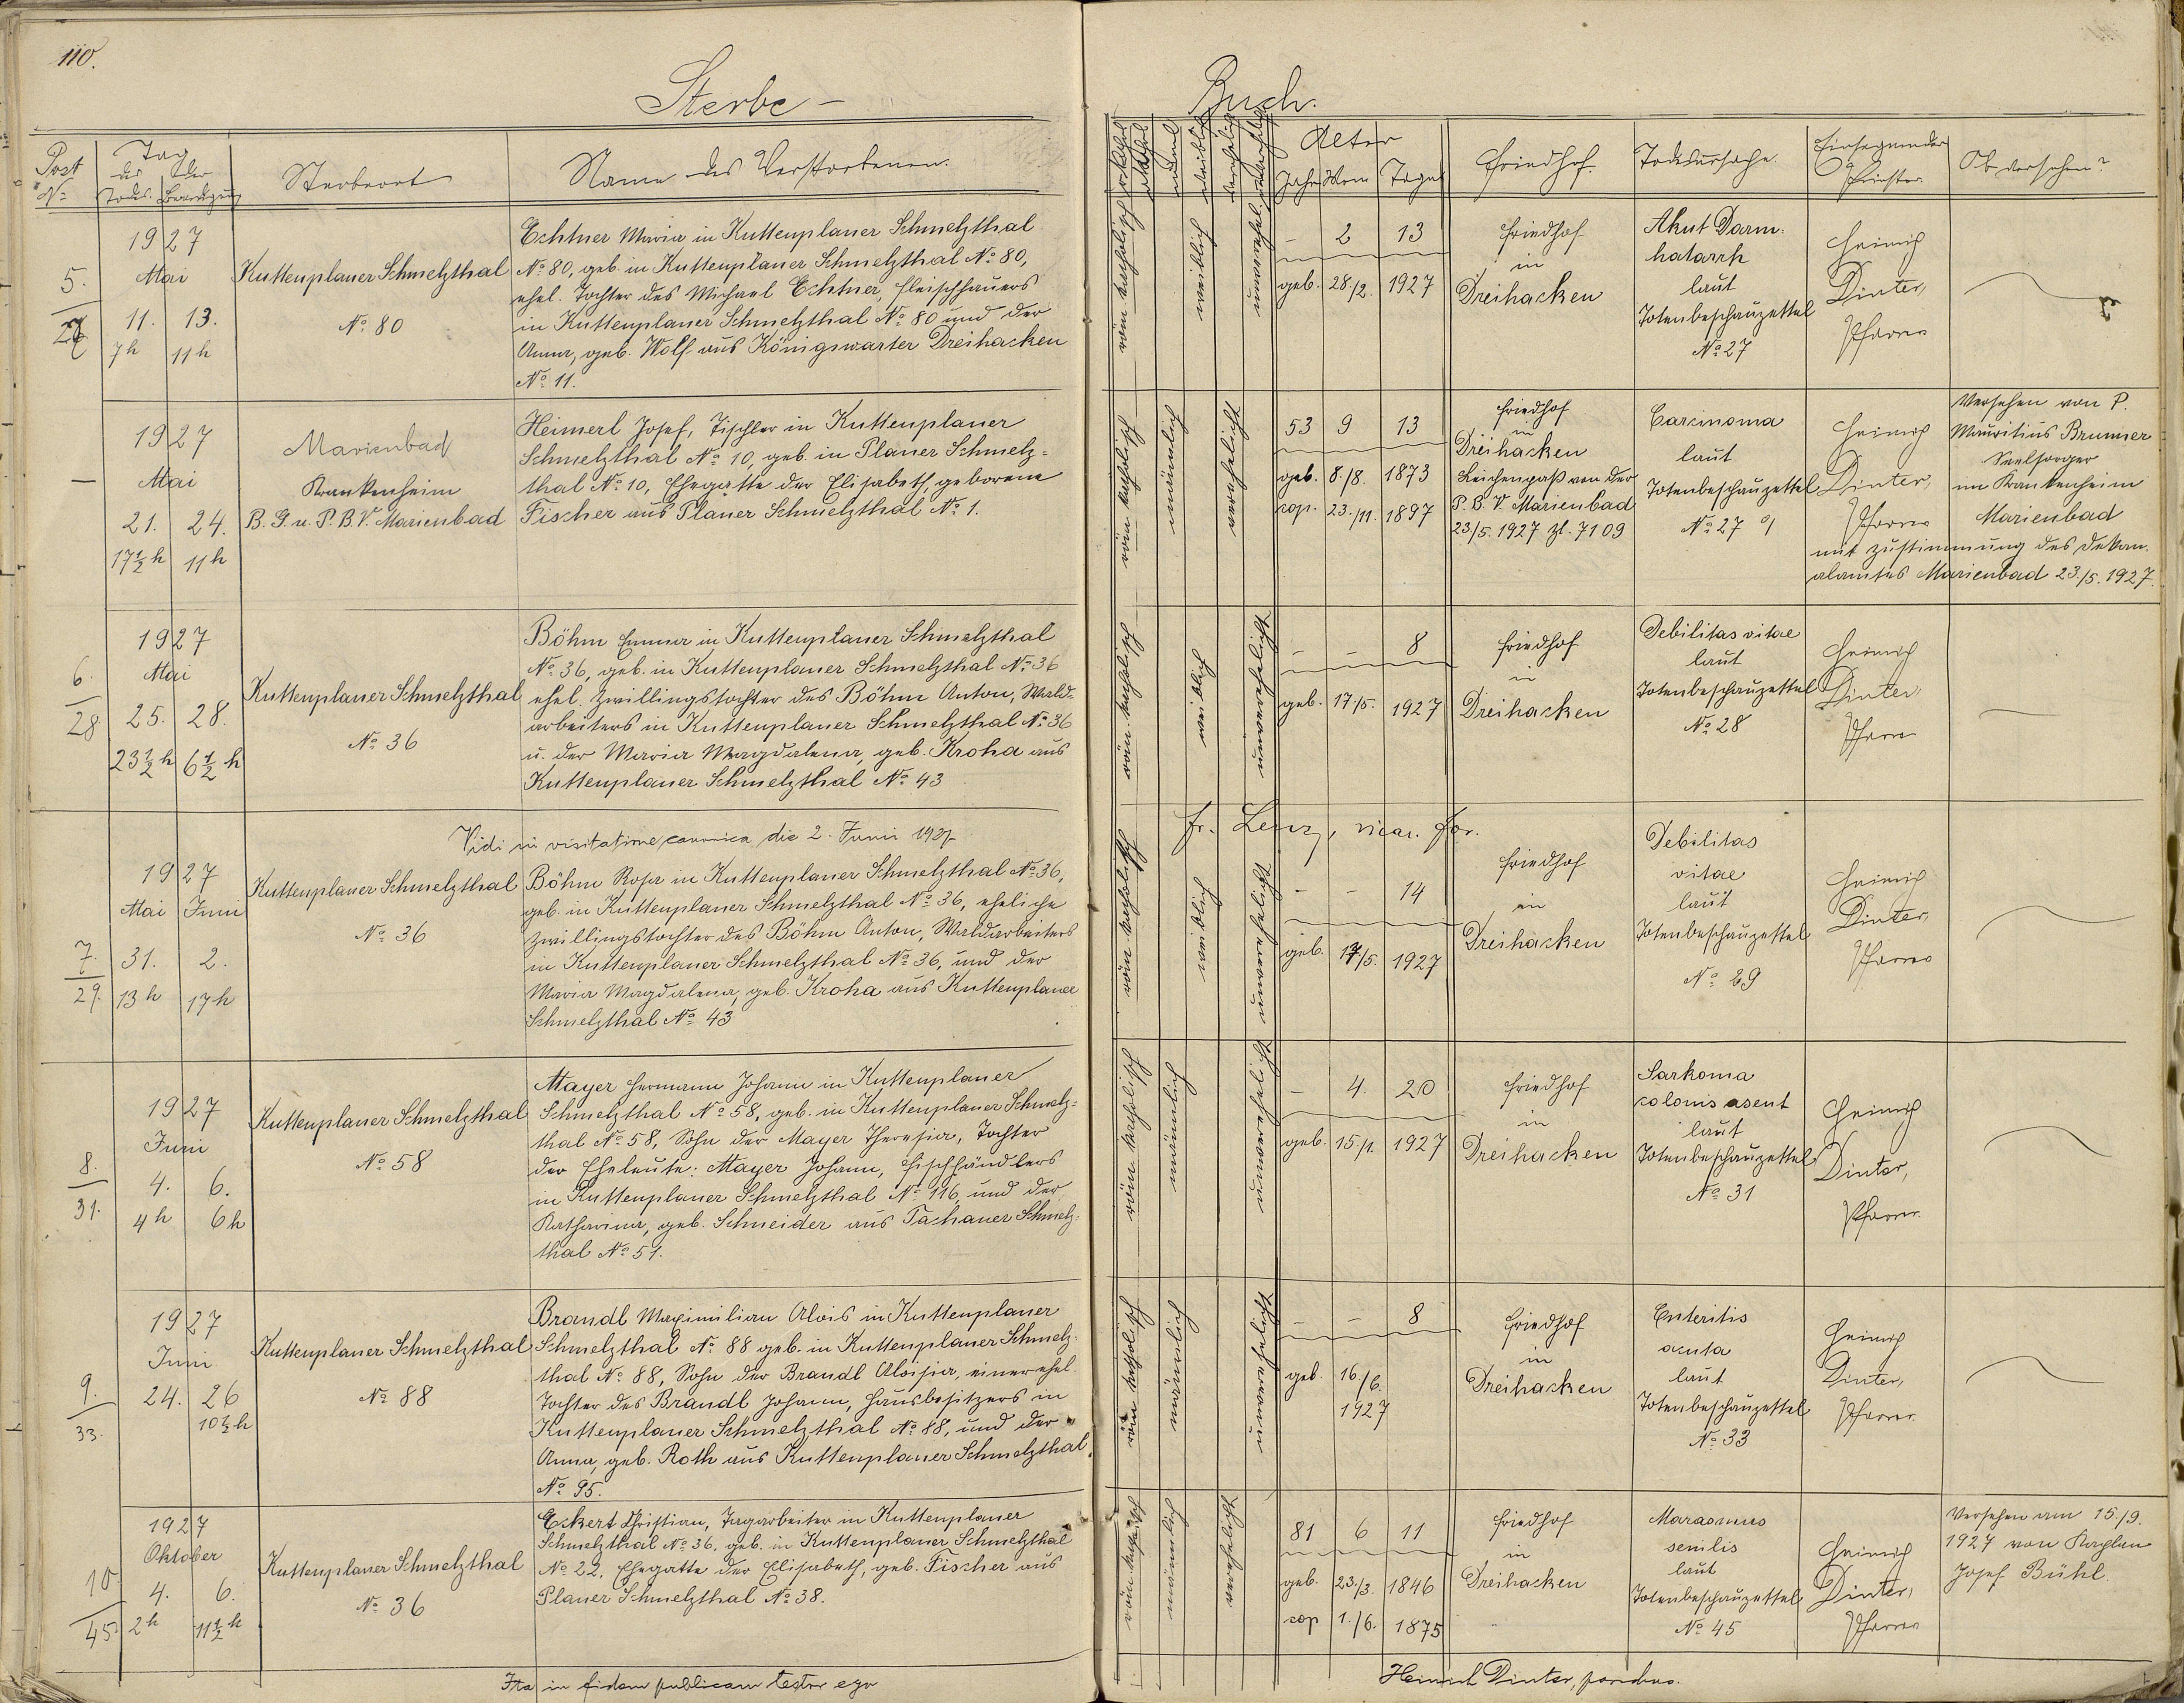 110.
Sterbe-
Buch.
Post
No
Tag
des
der
Todes.
Sterbeort
Name des Verstorbenen.
männl.
weiblich
Alter
Jahre
Mon.
Tage
Friedhof.
Todesursache.
Einsegnender
Priester.
Ob versehen?
5.
27
1927
Mai
11. 13.
7h 11h
Kuttenplaner Schmelzthal
No. 80
Echtner Maria in Kuttenplaner Schmelzthal
No. 80, geb. in Kuttenplaner Schmelzthal No. 80,
ehel. Tochter des Michael Echtner, Fleischhauers
in Kuttenplaner Schmelzthal No. 80 und der
Anna, geb. Wolf aus Königswarter Dreihacken
No. 11.
röm. katholisch
weiblich
unverehel.
- 2 13
geb. 28./2. 1927
Friedhof
in
Dreihacken
Akut Darm-
katarrh
laut
Totenbeschauzettel
No 27
Heinrich
Dinter,
Pfarrer
—
1927
Mai
21. 24.
17½h 11h
Marienbad
Krankenheim
B. G. u. P. B. V. Marienbad
Heimerl Josef, Tischler in Kuttenplaner
Schmelzthal No. 10, geb. in Planer Schmelz=
thal No. 10, Ehegatte der Elisabeth, geborene
Fischer aus Planer Schmelzthal No. 1.
röm. katholisch
männlich
verehelicht
53 9 13
geb. 8./8. 1873
cop. 23./11. 1897
Friedhof
in
Dreihacken
Leichenpaß von der
P. B. V. Marienbad
23/5. 1927 Zl. 7109
Carcinoma
laut
Totenbeschauzettel
No. 27
Heinrich
Dinter,
Pfarrer
Versehen von P.
Mauritius Brunner
Seelsorger
im Krankenheim
Marienbad
mit Zustimmung des Dekan-
alamtes Marienbad 23./5. 1927.
6.
28.
1927
Mai
25. 28.
23½h 6½h
Kuttenplaner Schmelzthal
No. 36
Böhm Emma in Kuttenplaner Schmelzthal
No. 36, geb. in Kuttenplaner Schmelzthal No. 36
ehel. Zwillingstochter des Böhm Anton, Wald-
arbeiters in Kuttenplaner Schmelzthal No. 36
u. der Maria Magdalena, geb. Kroha aus
Kuttenplaner Schmelzthal No. 43
röm. katholisch
weiblich
unverehelicht
- - 8
geb. 17./5. 1927
Friedhof
in
Dreihacken
Debilitas vitae
laut
Totenbeschauzettel
No. 28
Heinrich
Dinter,
Pfarrer
Vidi in visitatione canonica die 2. Junii 1927
Fr. Lenz, vicar. for.
7.
29.
1927
Mai Juni
31. 2.
13h 17h
Kuttenplaner Schmelzthal
No. 36
Böhm Rosa in Kuttenplaner Schmelzthal No. 36,
geb. in Kuttenplaner Schmelzthal No. 36, eheliche
Zwillingstochter des Böhm Anton, Waldarbeiters
in Kuttenplaner Schmelzthal No. 36, und der
Maria Magdalena, geb. Kroha aus Kuttenplaner
Schmelzthal No. 43
röm. katholisch
weiblich
unverehelicht
- - 14
geb. 17/5. 1927
Friedhof
in
Dreihacken
Debilitas
vitae
laut
Totenbeschauzettel
No. 29
Heinrich
Dinter,
Pfarrer
8.
31.
1927
Juni
4. 6.
4h 6h
Kuttenplaner Schmelzthal
No. 58
Mayer Hermann Johann in Kuttenplaner
Schmelzthal No. 58, geb. in Kuttenplaner Schmelz=
thal No. 58, Sohn der Mayer Theresia, Tochter
der Eheleute: Mayer Johann, Fischhändlers
in Kuttenplaner Schmelzthal No. 116, und der
Katharina, geb. Schneider aus Tachauer Schmelz=
thal No. 51.
röm. katholisch
männlich
unverehelicht
- 4. 20
geb. 15/1. 1927
Friedhof
in
Dreihacken
Sarkoma
colonis asent
laut
Totenbeschauzettel
No. 31
Heinrich
Dinter,
Pfarrer.
9.
33.
1927
Juni
24. 26
10½h
Kuttenplaner Schmelzthal
No. 88
Brandl Maximilian Alois in Kuttenplaner
Schmelzthal No. 88 geb. in Kuttenplaner Schmelz-
thal No. 88, Sohn der Brandl Aloisia, einer ehel.
Tochter des Brandl Johann, Hausbesitzers in
Kuttenplaner Schmelzthal No. 88, und der
Anna, geb. Roth aus Kuttenplaner Schmelzthal
No. 95.
röm. katholisch
männlich
unverehelicht
- - 8
geb. 16./6.
1927
Friedhof
in
Dreihacken
Enteritis
acuta
laut
Totenbeschauzettel
No. 33
Heinrich
Dinter,
Pfarrer.
10.
45.
1927
Oktober
4. 6.
2h 11½h
Kuttenplaner Schmelzthal
No. 36
Eckert Christian, Tagarbeiter in Kuttenplaner
Schmelzthal No. 36, geb. in Kuttenplaner Schmelzthal
No. 22, Ehegatte der Elisabeth, geb. Fischer aus
Planer Schmelzthal No. 38.
röm. katholisch
männlich
verehelicht
81 6 11
geb. 23./3. 1846
cop 1./6. 1875
Friedhof
in
Dreihacken
Marasmus
senilis
laut
Totenbeschauzettel
No. 45
Heinrich
Dinter,
Pfarrer
Versehen am 15./9.
1927 von Kaplan
Josef Bühl.
Ita in fidem publicam testor ego
Heinrich Dinter, parochus.